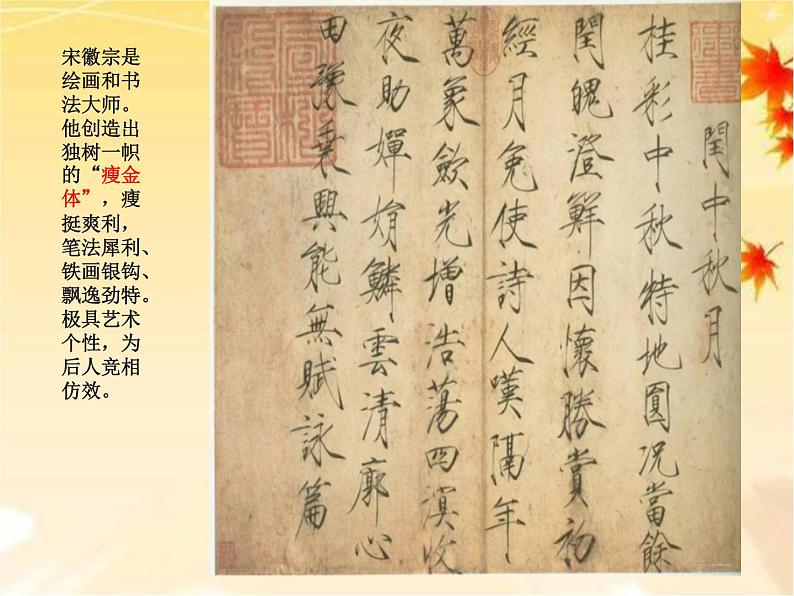 宋徽宗是
绘画和书
法大师。
他创造出
独树一帜
的“瘦金
体”，瘦
挺爽利，
笔法犀利、
铁画银钩、
飘逸劲特。
极具艺术
个性，为
后人竞相
仿效。
閏中秋月
桂彩中秋特地圓况當餘
閏魄澄鮮因懷勝賞初
經月免使詩人嘆隔年
萬象歛光增浩蕩四溟收
夜助嬋娟鱗雲清廓心
田豫乗興能無賦詠篇